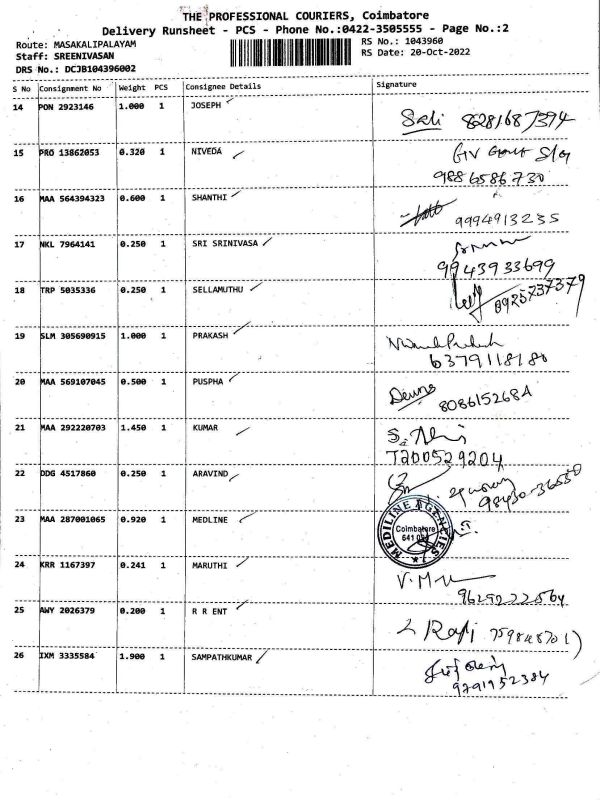 THE PROFESSIONAL COURIERS, Coimbatore
Delivery Runsheet - PCS - Phone No.:0422-3505555 - Page No.:2
Route: MASAKALIPALAYAM
RS No.: 1043960
Staff: SREENIVASAN
RS Date: 20-Oct-2022
DRS No.: DCJB104396002
S No Consignment No Weight PCS Consignee Details Signature
14 PON 2923146 1.000 1 JOSEPH
8281687394
15 PRO 13862053 0.320 1 NIVEDA
9886586730
16 MAA 564394323 0.600 1 SHANTHI
9994913235
17 NKL 7964141 0.250 1 SRI SRINIVASA
9943933699
18 TRP 5035336 0.250 1 SELLAMUTHU
8925737379
19 SLM 305690915 1.000 1 PRAKASH
6379118180
20 MAA 569107045 0.500 1 PUSPHA
8086152684
21 MAA 292220703 1.450 1 KUMAR
7200529204
22 DDG 4517860 0.250 1 ARAVIND
98430-36550
23 MAA 287001065 0.920 1 MEDLINE
MEDILINE AGENCIES
Coimbatore
24 KRR 1167397 0.241 1 MARUTHI
V.M
9629222564
25 AWY 2026379 0.200 1 R R ENT
26 IXM 3335584 1.900 1 SAMPATHKUMAR
9791952384